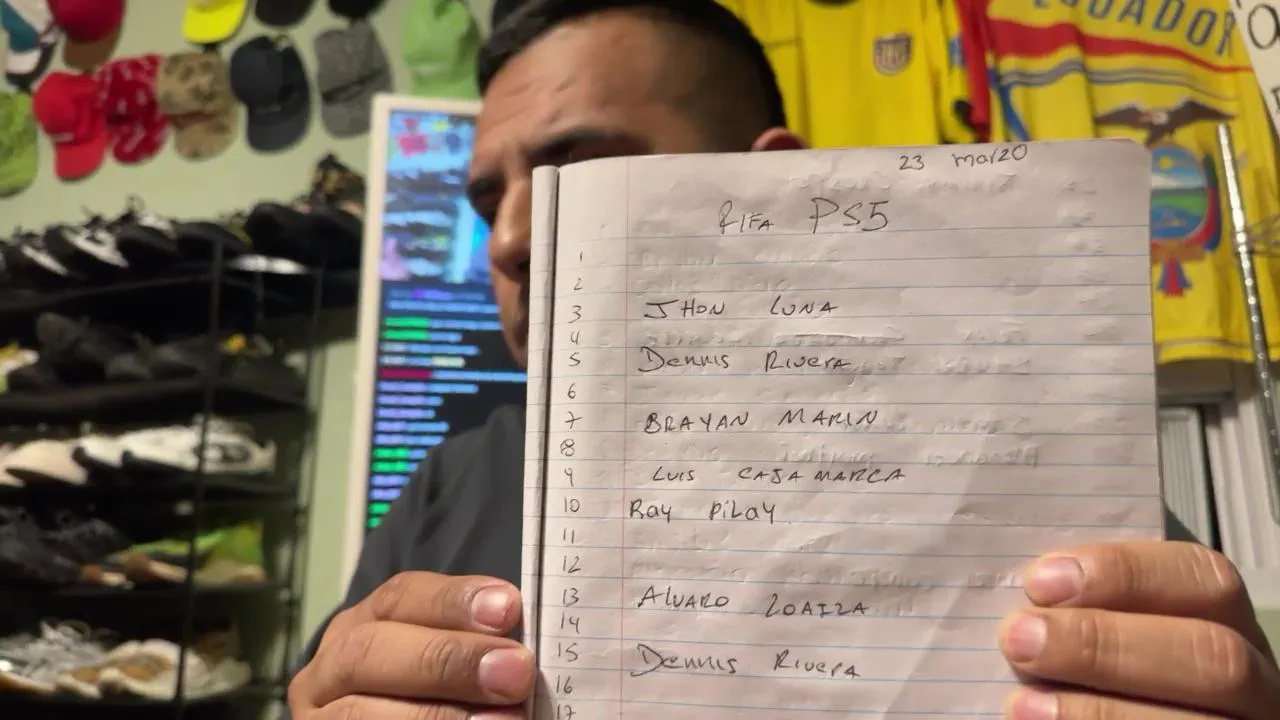 ECUADOR
23 marzo
RIFA PS5
1
2
3 JHON LUNA
4
5 Dennis Rivera
6
7 BRAYAN MARIN
8
9 LUIS CAJAMARCA
10 Ray Pilay
11
12
13 ALVARO LOAIZA
14
15 Dennis Rivera
16
17